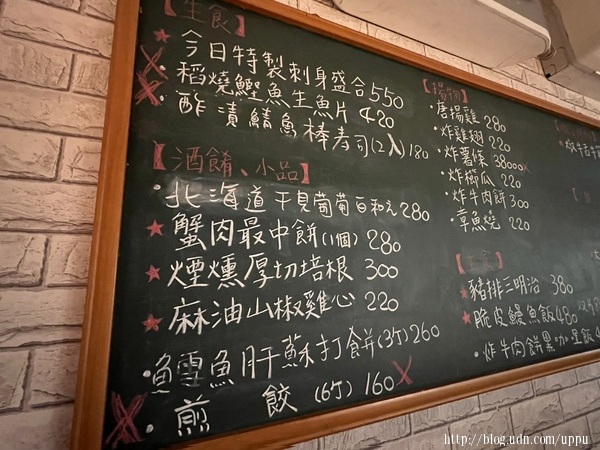 【生食】
★今日特製刺身盛合550
稻燒鰹魚生魚片 420
·酢漬鯖魚棒壽司(2入)180
【酒餚、小品】
·北海道干貝葡萄百和元280
★蟹肉最中餅(1個) 280
★煙燻厚切培根 300
★麻油山椒雞心 220
·鱈魚肝蘇打餅(3片)260
·煎餃(6個)160
【揚物】
·唐揚雞 280
·炸雞翅 220
·炸薯條
·炸櫛瓜 220
·炸牛肉餅 300
·章魚燒 220
【主食】
★豬排三明治 380
★脆皮鰻魚飯480
·炸牛肉餅黑咖哩飯
http://blog.udn.com/uppu